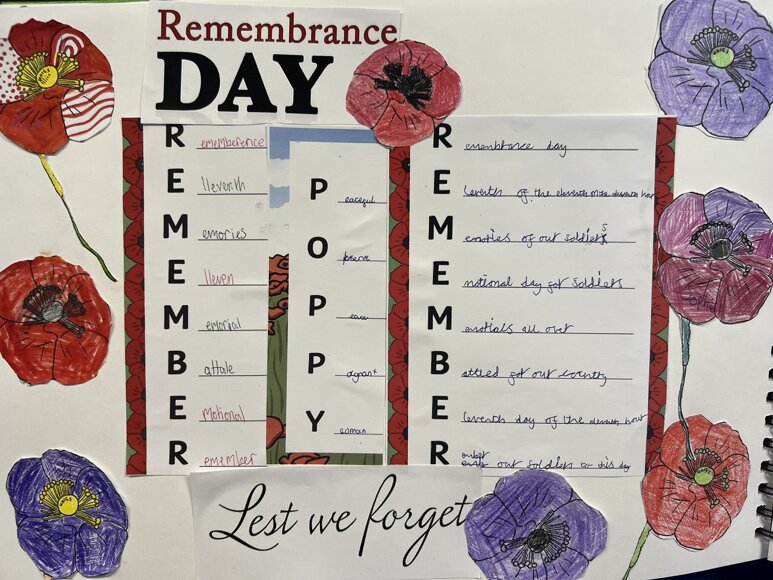 Remembrance
DAY
R ememberence
E lleventh
M emories
E lleven
M emorial
B attale
E Motional
R emember
P eaceful
O bserve
P eace
P oignant
Y eoman
R emembrance day
E leventh of the eleventh on the eleventh hour
M emories of our soldiers
E national day for soldiers
M emotials all over
B attled for our country
E leventh day of the eleventh hour
R our soldiers on this day
Lest we forget